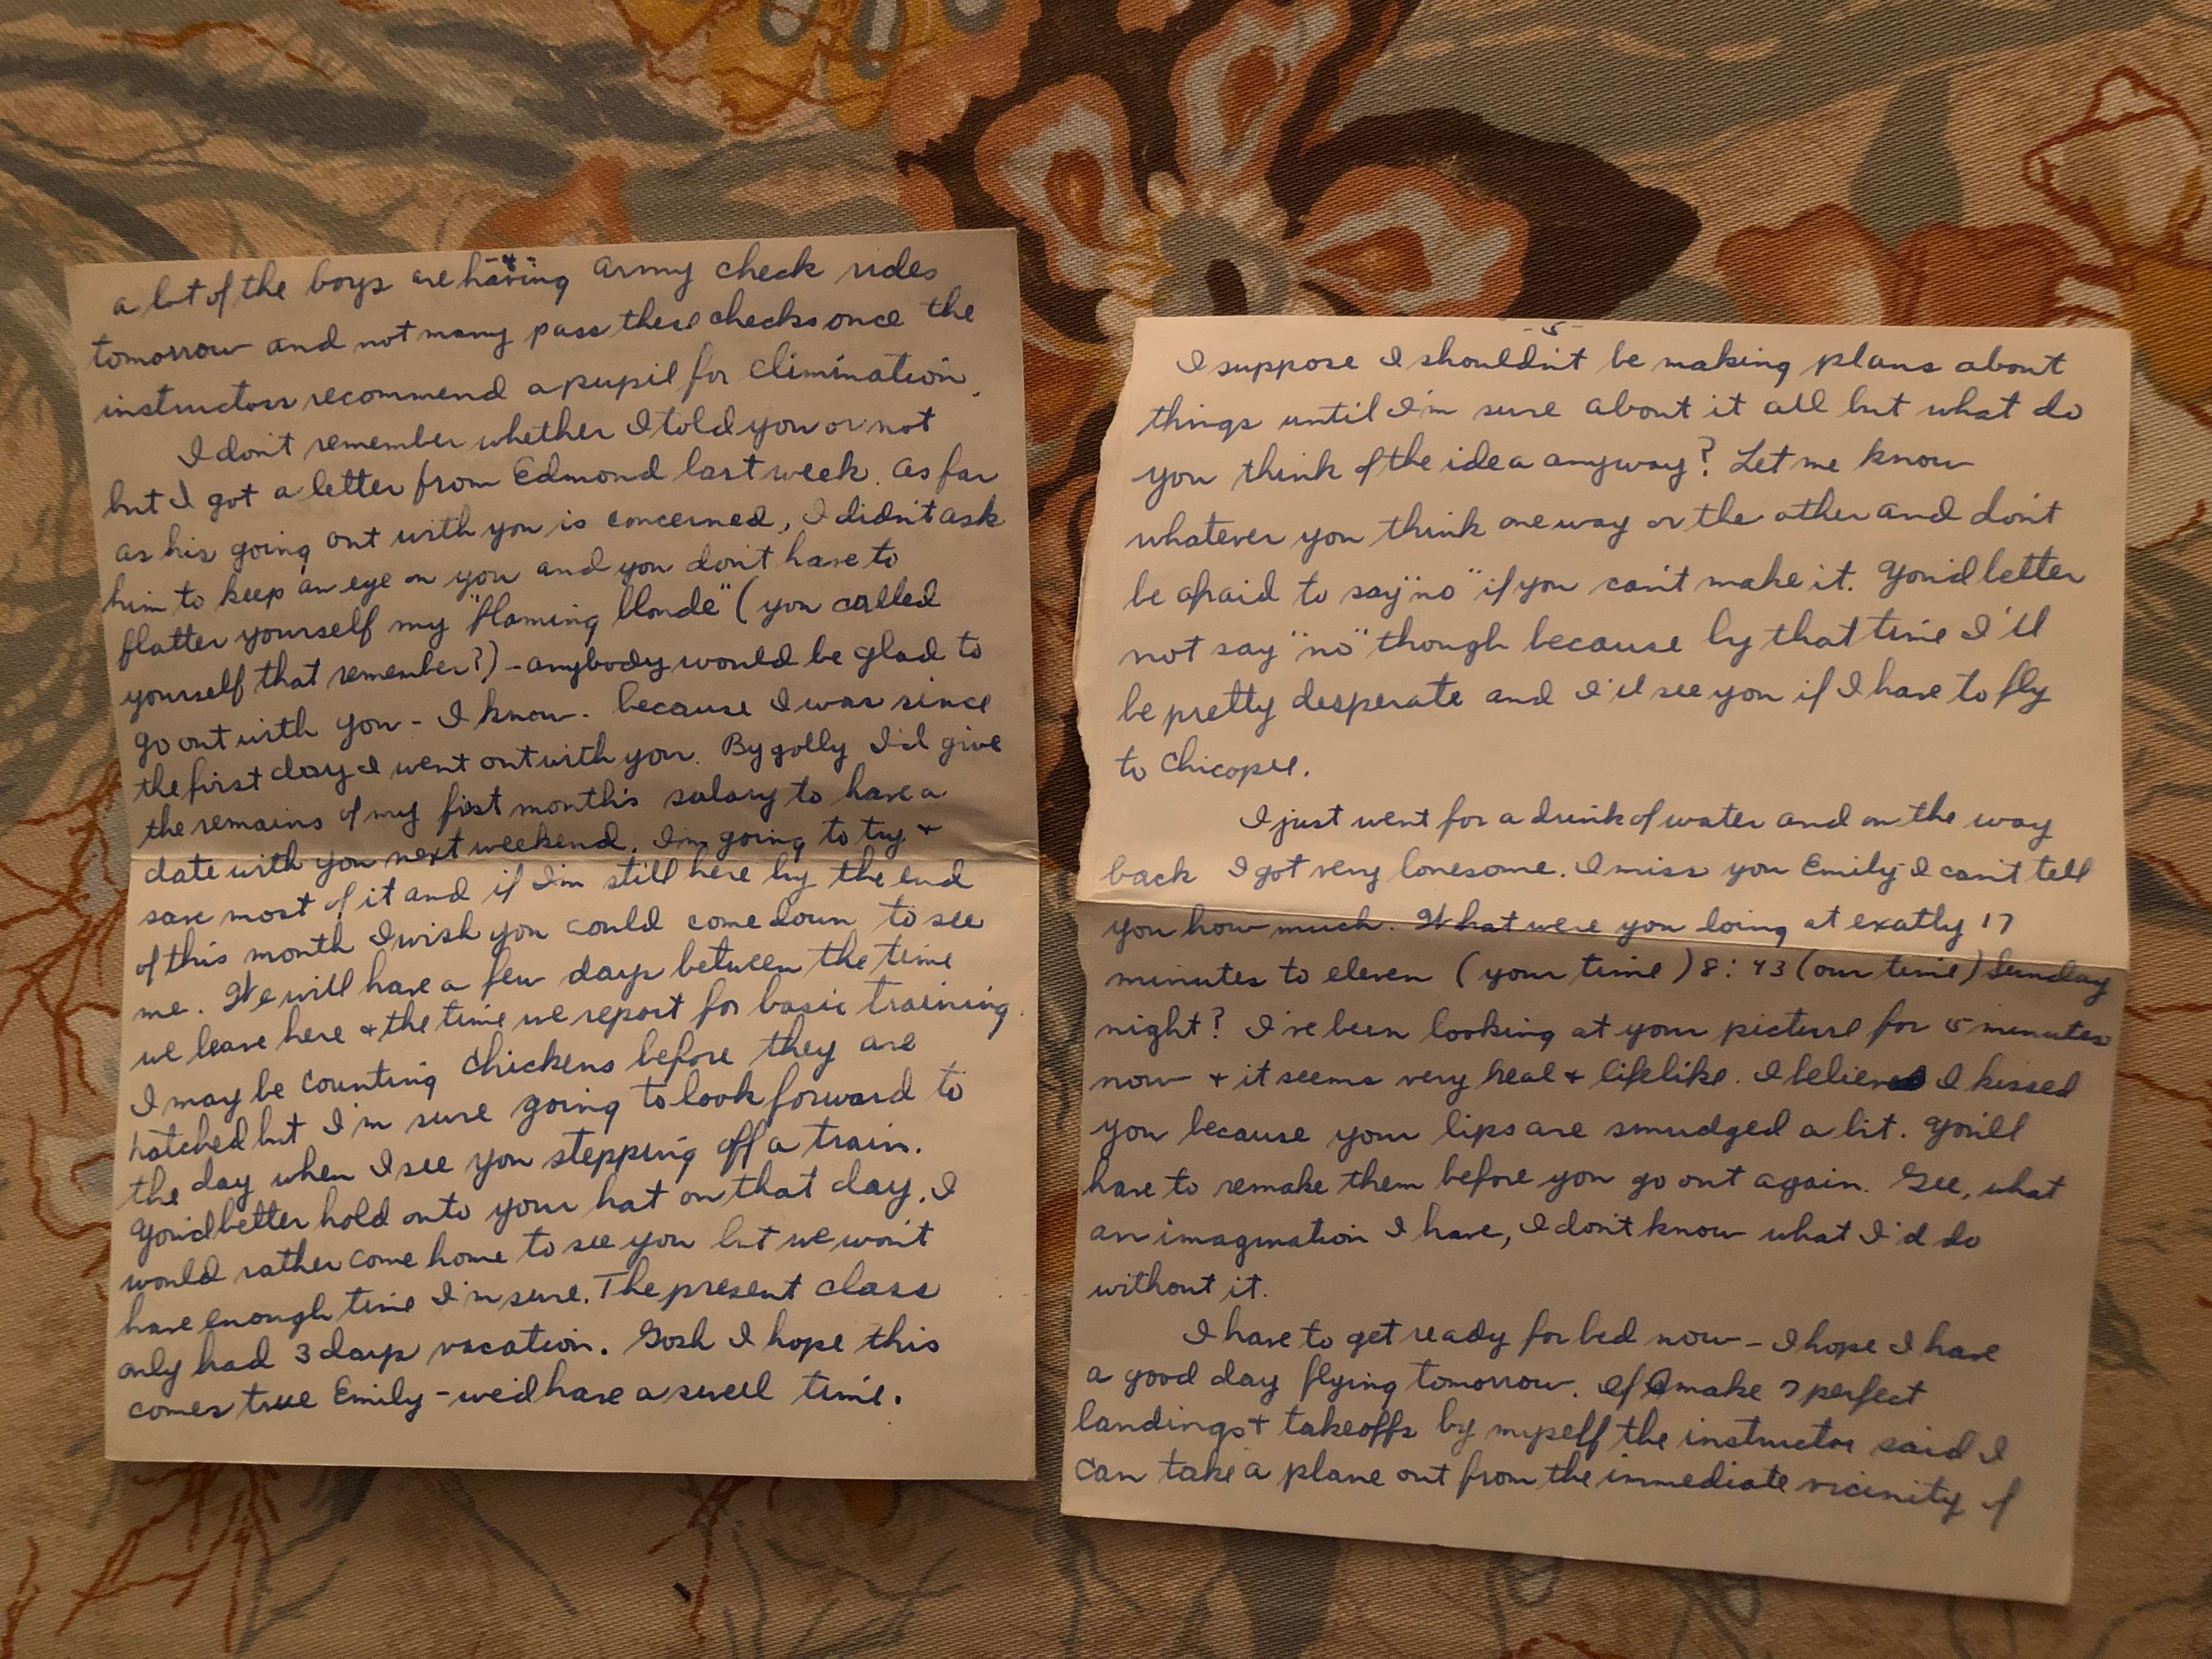 -4-
a lot of the boys are having army check rides
tomorrow and not many pass these checks once the
instructors recommend a pupil for elimination.
I don't remember whether I told you or not
but I got a letter from Edmond last week. As far
as his going out with you is concerned, I didn't ask
him to keep an eye on you and you don't have to
flatter yourself my "flaming blonde" (you called
yourself that remember?) - anybody would be glad to
go out with you - I know - because I was since
the first day I went out with you. By golly I'd give
the remains of my first month's salary to have a
date with you next weekend. I'm going to try +
save most of it and if I'm still here by the end
of this month I wish you could come down to see
me. We will have a few days between the time
we leave here + the time we report for basic training.
I may be counting chickens before they are
hatched but I'm sure going to look forward to
the day when I see you stepping off a train.
You'd better hold onto your hat on that day. I
would rather come home to see you but we won't
have enough time I'm sure. The present class
only had 3 days vacation. Gosh I hope this
comes true Emily - we'd have a swell time.
-5-
I suppose I shouldn't be making plans about
things until I'm sure about it all but what do
you think of the idea anyway? Let me know
whatever you think one way or the other and don't
be afraid to say "no" if you can't make it. You'd better
not say "no" though because by that time I'll
be pretty desperate and I'll see you if I have to fly
to Chicopee.
I just went for a drink of water and on the way
back I got very lonesome. I miss you Emily I can't tell
you how much. What were you doing at exatly 17
minutes to eleven (your time) 8:43 (our time) Sunday
night? I've been looking at your picture for 5 minutes
now + it seems very heal + lifelike. I believe I kissed
you because your lips are smudged a bit. You'll
have to remake them before you go out again. Gee, what
an imagination I have, I don't know what I'd do
without it.
I have to get ready for bed now - I hope I have
a good day flying tomorrow. If I make 7 perfect
landings + takeoffs by myself the instructor said I
can take a plane out from the immediate vicinity of